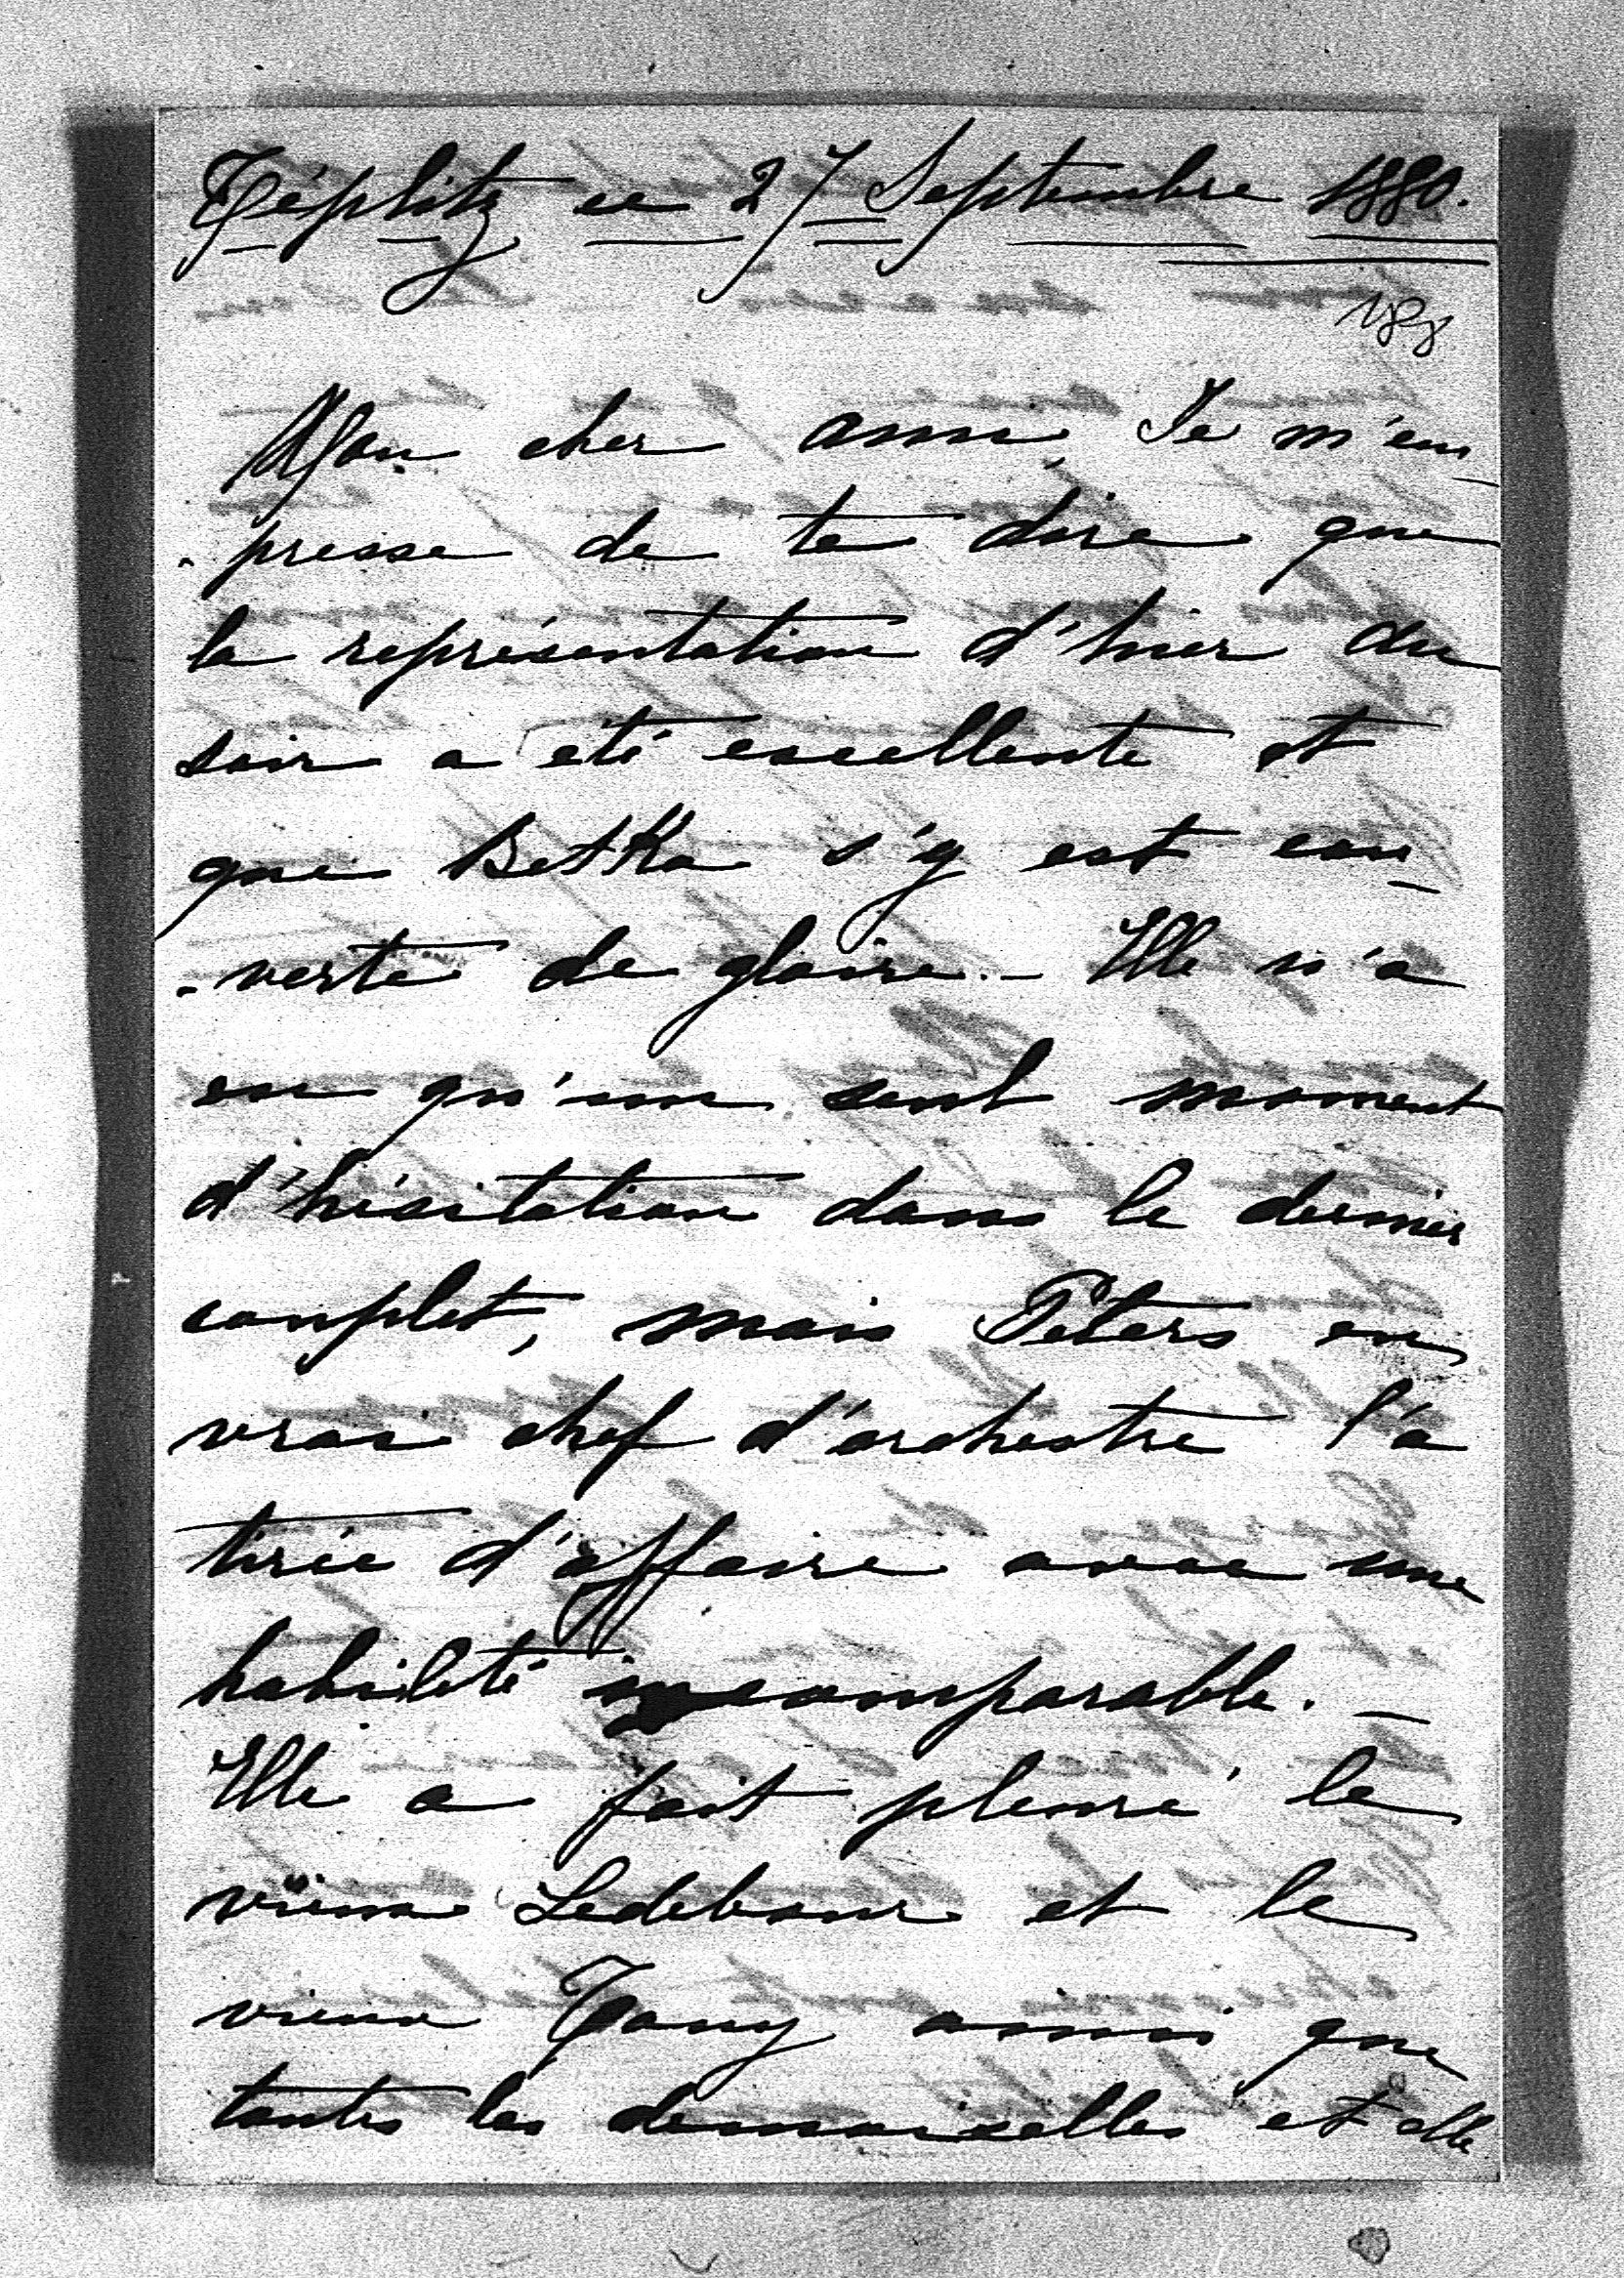 Téplitz ce 27 Septembre 1880.
188
Mon cher ami, Je m'em_
- presse de te dire que
la représentation d'hier du
soir a été excellente et
que Betka s'y est cou_
- verte de gloire. - Elle n'a
eu qu'un seul moment
d'hésitation dans le dernier
couplet, mais Péters en
vrai chef d'orchestre l'a
tirée d'affaire avec une
habileté incomparable. _
Elle a fait pleuré le
vieux Ledebour et le
vieux Tony ainsi que
toutes les demoiselles et elle